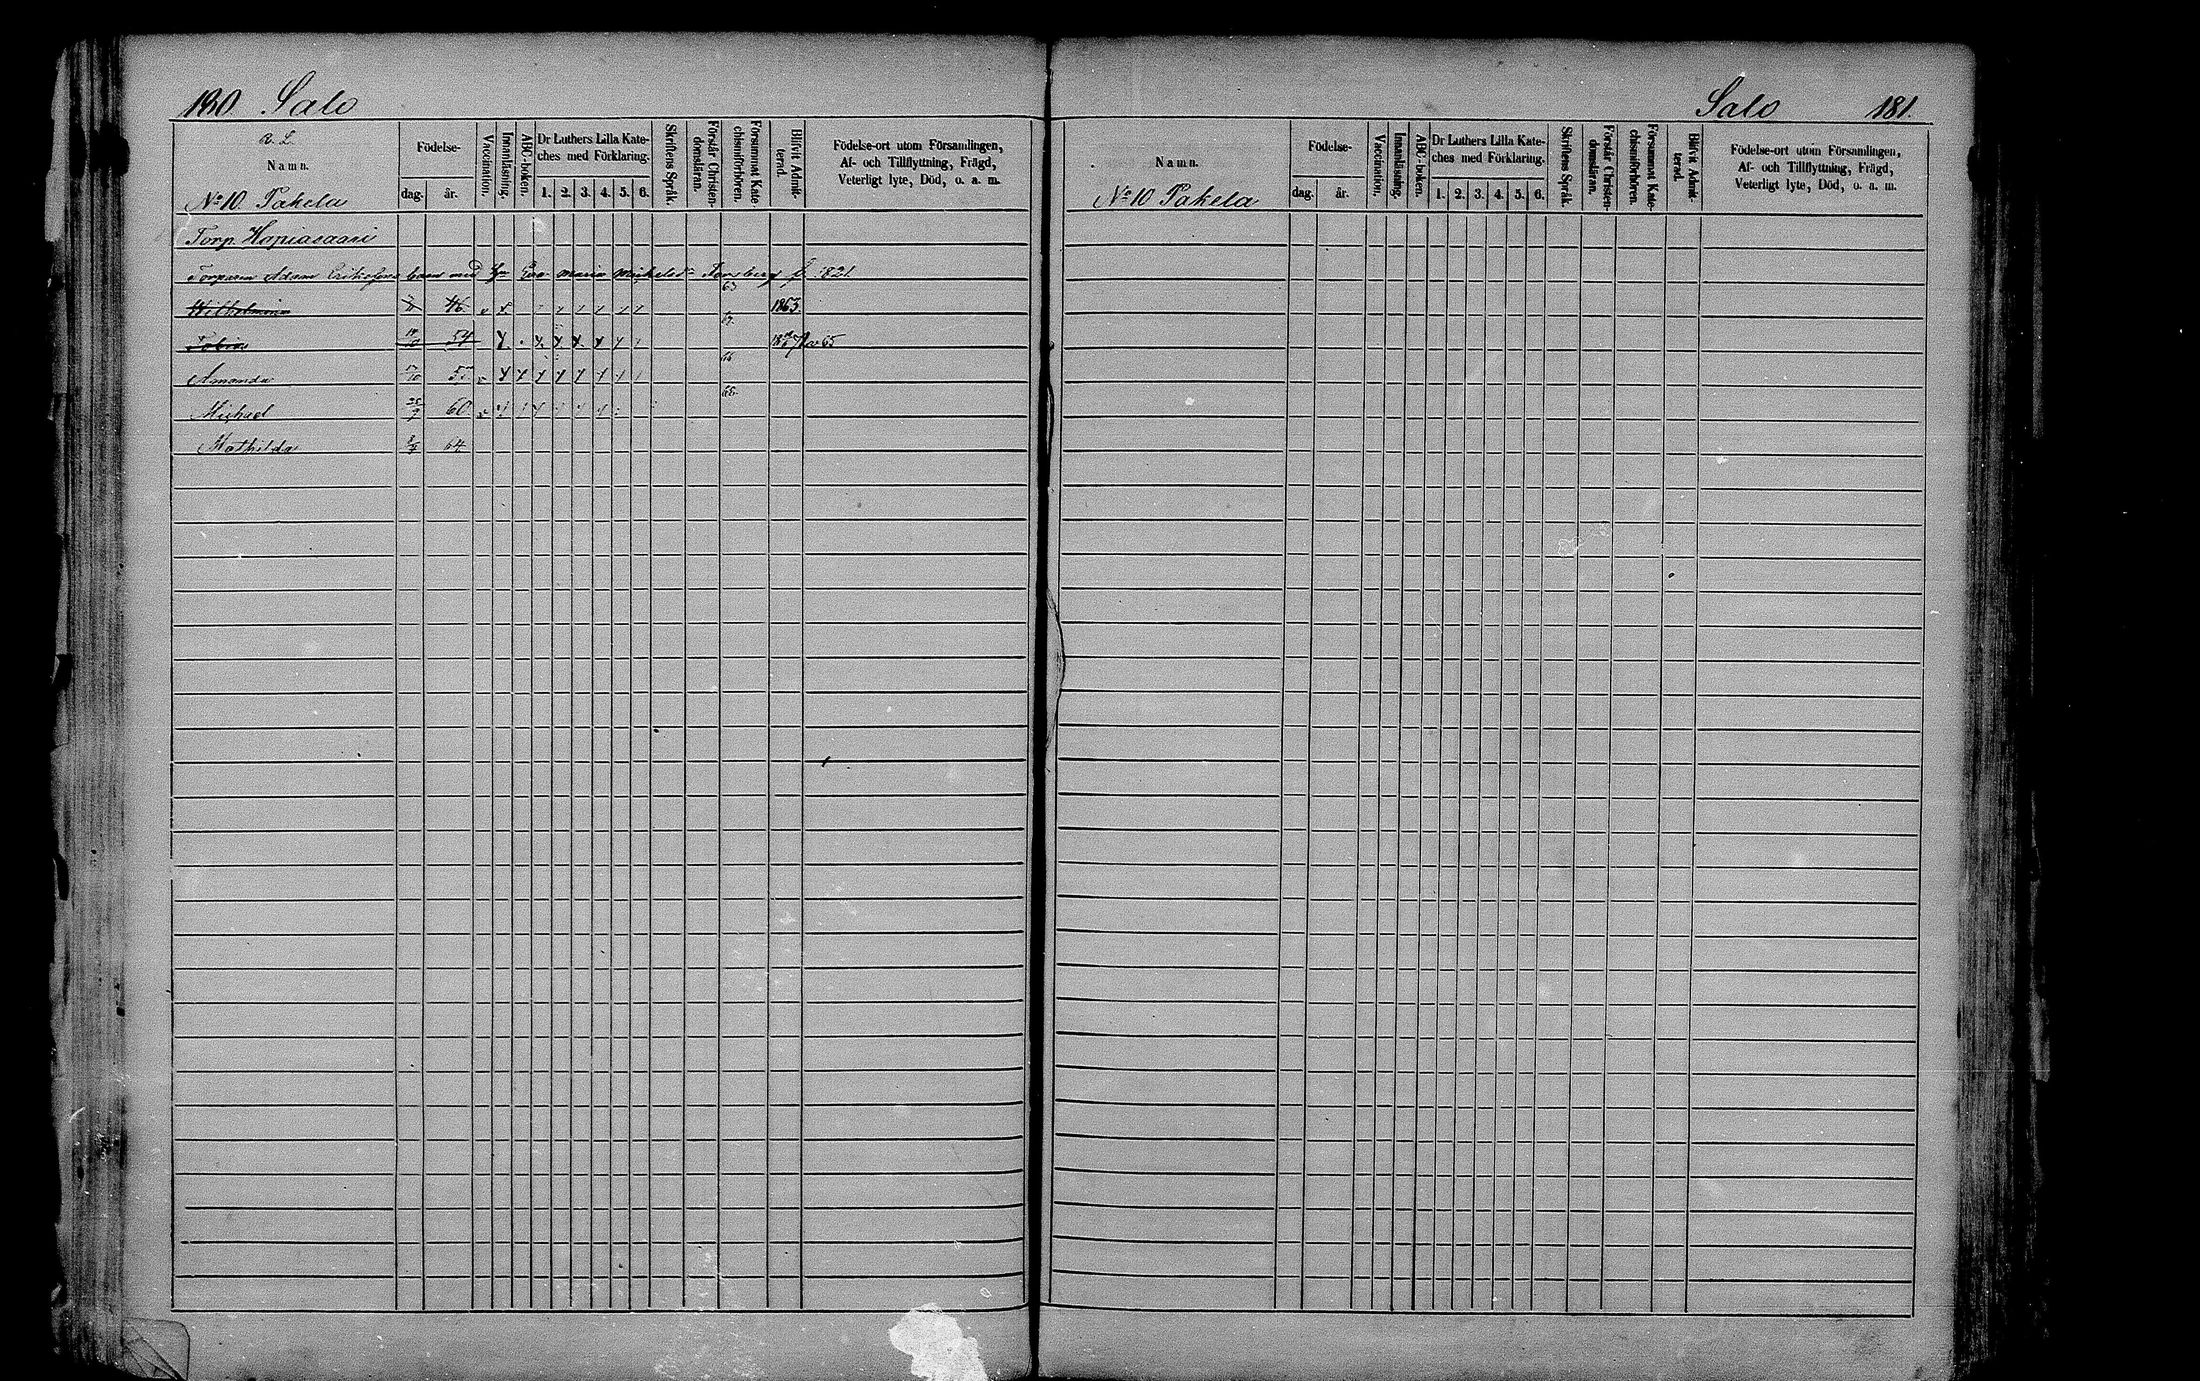 180 Salo
Namn.
Födelse-
dag.
år.
Vaccination.
Innanläsning.
ABC-boken.
Dr Luthers Lilla Kate-
ches med Förklaring.
1. 2. 3. 4. 5. 6.
Skriftens Språk.
Förstår Christen-
domsläran.
Försummat Kate-
chismiförhören.
Blifvit Admit-
terad.
Födelse-ort utom Församlingen,
Af- och Tillflyttning, Frägd,
Veterligt lyte, Död, o. a. m.
No 10 Pakela
Torp. Hapiasaari
Torparen Adam Erikssons barn med Eva Maria f. 1821
Wilhelmina 46 63 1863
Tobias 54 67
Amanda 17/10 57 66
Michael 60 68
Mathilda 64
Salo 181.
Namn.
Födelse-
dag.
år.
Vaccination.
Innanläsning.
ABC-boken.
Dr Luthers Lilla Kate-
ches med Förklaring.
1. 2. 3. 4. 5. 6.
Skriftens Språk.
Förstår Christen-
domsläran.
Försummat Kate-
chismiförhören.
Blifvit Admit-
terad.
Födelse-ort utom Församlingen,
Af- och Tillflyttning, Frägd,
Veterligt lyte, Död, o. a. m.
No 10 Pakela